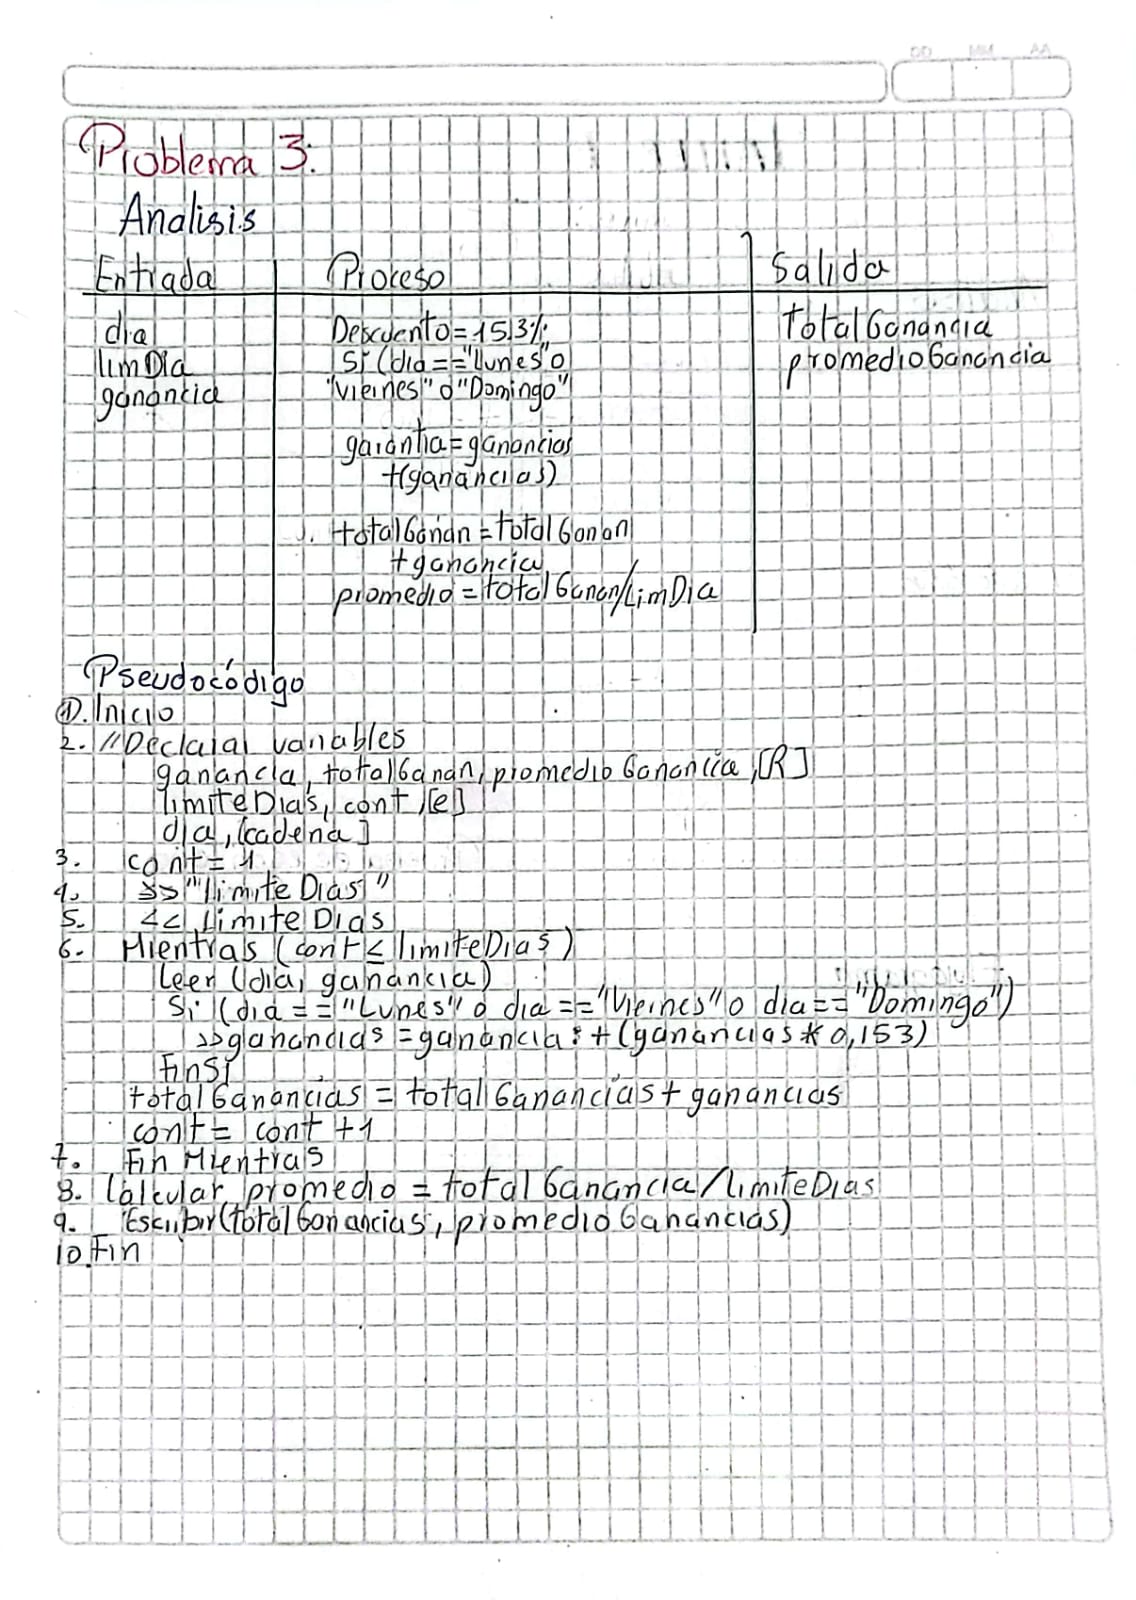 DD MM AA
Problema 3.
Analisis
Entrada Proceso Salida
dia Descuento=15.3% totalGanancia
limDia Si (dia=="Lunes" o promedioGanancia
ganancia "Viernes" o "Domingo"
garantia=ganancias
+(ganancias)
totalGanan=totalGanan
+ganancia
promedio=totalGanan/LimDia
Pseudocódigo
1. Inicio
2. //Declarar variables
ganancia, totalGanan, promedioGanancia, [R]
limiteDias, cont, [e]
dia, [cadena]
3. cont=1
4. >>"limiteDias"
5. << LimiteDias
6. Mientras (cont≤limiteDias)
Leer (dia, ganancia)
Si (dia=="Lunes" o dia=="Viernes" o dia=="Domingo")
>>ganancias=ganancia+(ganancias*0,153)
FinSi
totalGanancias=totalGanancias+ganancias
cont=cont+1
7. Fin Mientras
8. Calcular promedio=totalGanancia/limiteDias
9. Escribir(totalGanancias, promedioGanancias)
10. Fin